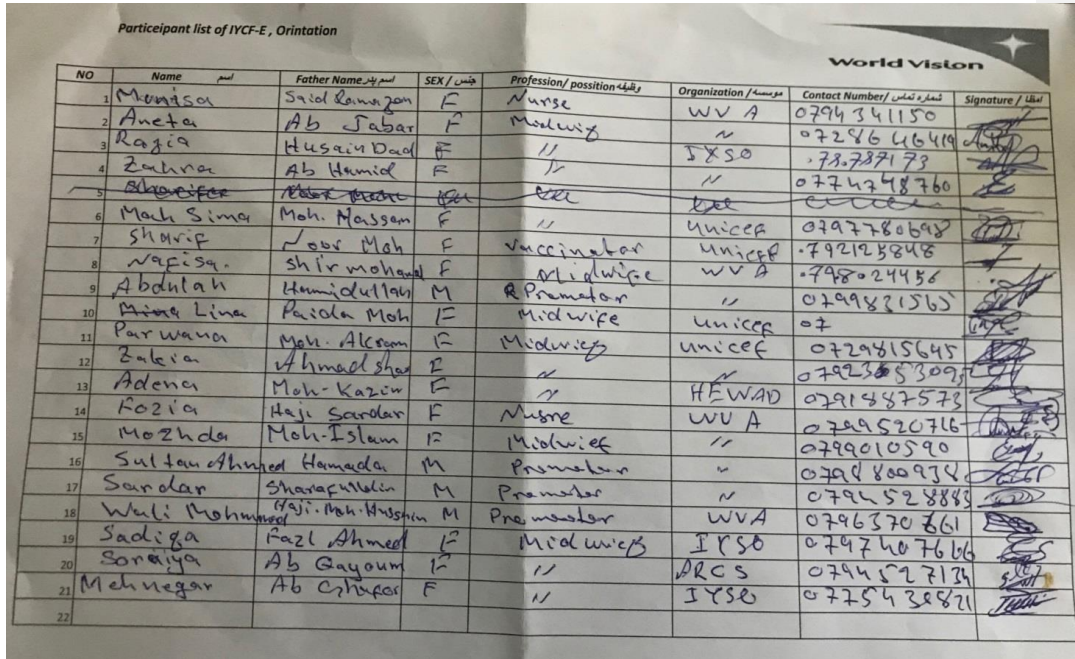 Particeipant list of IYCF-E , Orintation
World Vision
NO Name اسم Father Name اسم پدر SEX / جنس Profession/ possition وظیفه Organization / موسسه Contact Number/ شماره تماس Signature / امضا
1 Munisa Said Ramazan F Nurse WVA 0794341150
2 Aneta Ab Jabar F Midwif 〃 0728646419
3 Razia Husain Dad F 〃 IYSO
4 Zahra Ab Hamid F 〃 〃 0774748760
5
6 Mah Sima Moh. Hassam F 〃 unicef 0797780698
7 Sharif Noor Moh F Vaccinator unicef .792125848
8 Nafisa. Shir mohamad F Midwife WVA .798024456
9 Abdulah Hamidullah M Premotor 〃 0799831565
10 Lina Paida Moh F Midwife unicef 07
11 Parwana Moh. Akram F Midwief unicef 0729815645
12 Zakia Ahmad sha F 〃 〃
13 Adena Moh-Kazim F 〃 HEWAD 0791887573
14 Fozia Haji Sardar F Nusre WVA 0799520716
15 Mozhda Moh-Islam F Midwief 〃 0799010590
16 Sultan Ahmed Hamada M Premotor 〃 0798800938
17 Sardar Sharafuldin M Premotor 〃 0794528883
18 Wali Mohmmad Haji. Moh. Hussain M Premotor WVA 0796370661
19 Sadiqa Fazl Ahmed F Midwief IYSO 0797407666
20 Soraiya Ab Qayoum F 〃 ARCS 0794527134
21 Mehnegar Ab Ghafor F 〃 IYSO 0775430821
22